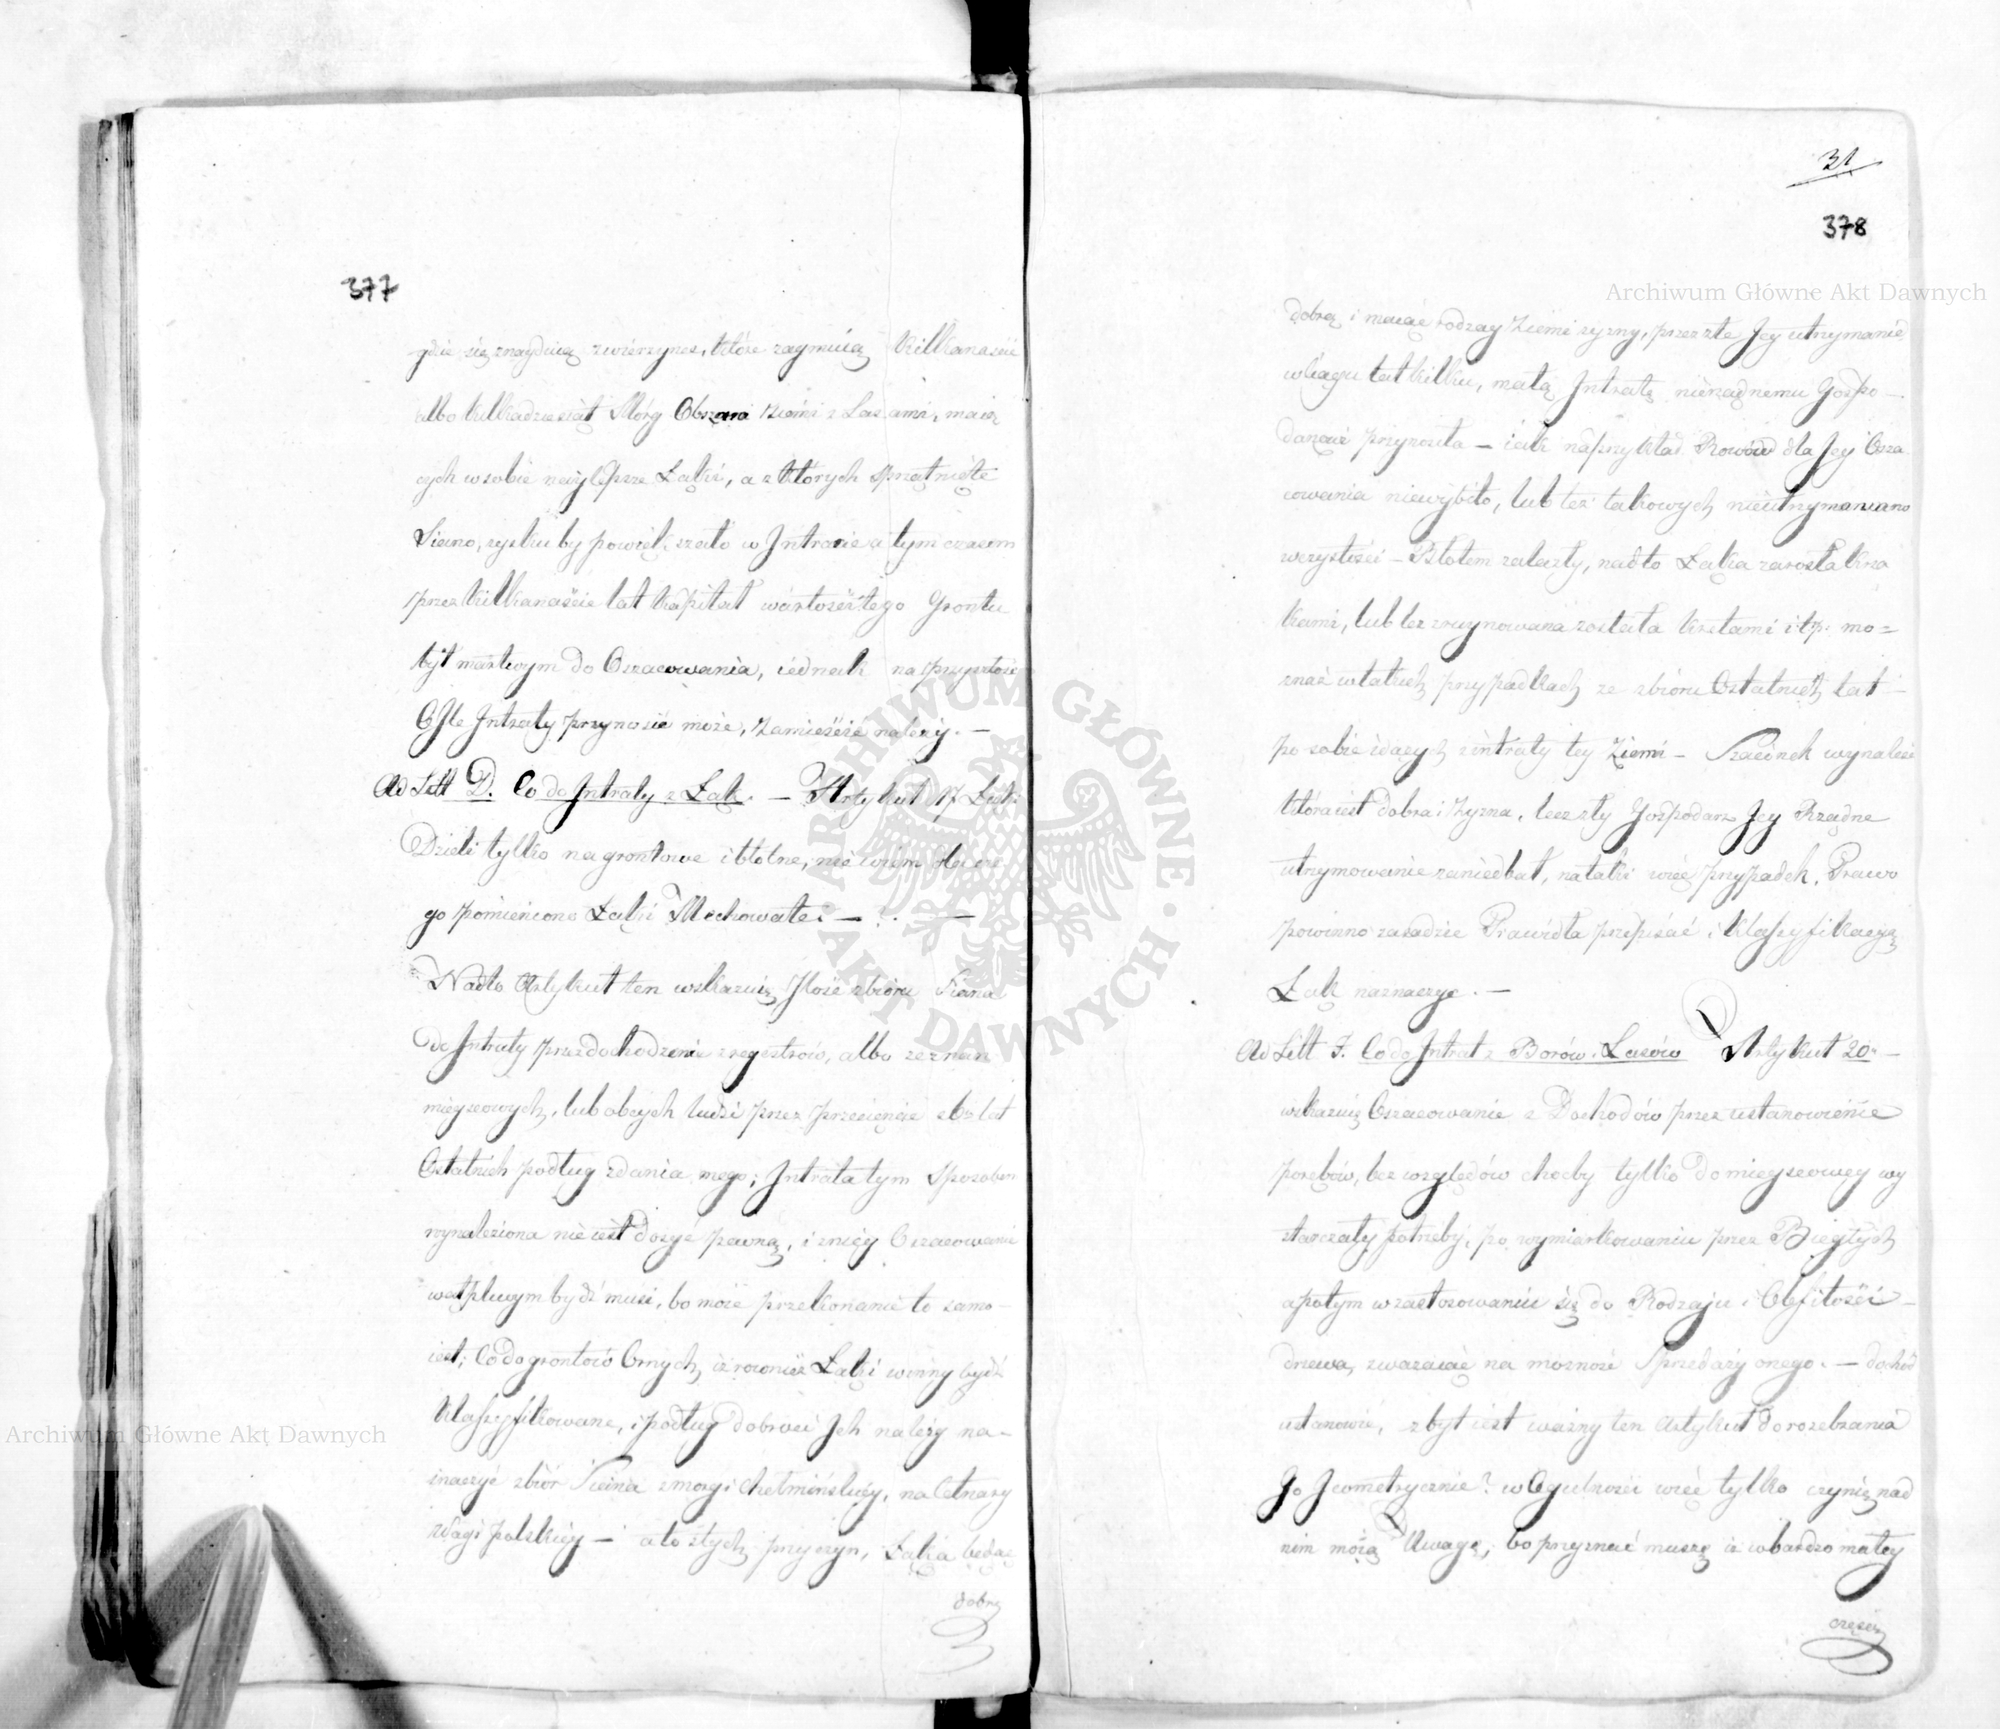 377
gdzie się znayduią zwierzynce, które zaymuią kilkanaście
albo kilkadziesiąt Morg Obszaru Ziemi z Lasami, maią
cych w sobie naylepsze Łąki, a z których Sprzątnięte
Siano, zysku by powiększało w Intracie a tym czasem
przez kilkanaście lat kapitał wartości tego Grontu
był martwym do Oszacowania, iednak na przyszłość
O Ile Intraty przynosić może, zamieścić należy. —
Ad Litt D. Co do Intraty z Łąk. — Artykuł 17 Łąki
Dzieli tylko na grontowe i błotne, nie wiem dla cze
go pominiono Łąki Mechowate. — ? . —
Nadto Artykuł ten wskazuią Ilość zbioru Siana
do Intraty przez dochodzenie z regestrów, albo zeznań
mieyscowych, lub obcych ludzi przez przecięcie z lat
Ostatnich podług zdania mego; Intrata tym Sposobem
wynaleziona nie iest dosyć pewną, i z niey Oszacowanie
wątpliwym bydź musi, bo moie przekonanie to samo —
iest; Co do grontów Ornych, iż rownież Łąki winny bydź
klassyfikowane, i podług dobroci Ich należy na-
znaczyć zbiór Siana z morgi chełmińskiey, na Cetnary
Wagi polskiey — a to z tych przyczyn, Łąka będąc
dobrą
31
378
Archiwum Główne Akt Dawnych
dobrą i maiąc rodzay Ziemi żyzny, przez złe Jey utrzymanie
w ciągu lat kilku, małą Intratę nierządnemu Gospo —
darzowi przynosiła — iak naprzykład Rowów dla Jey Osza
cowania niewybito, lub też takowych nieutrzymywano
w czystości — Błotem zalazły, nadto Łąka zarosła krza
kami, lub też zruynowana została kretami i t.p. mo=
znaż w takich przypadkach ze zbioru Ostatnich lat —
po sobie idących z intraty tey Ziemi — Szacunek wynaleść
która iest dobra i żyzna, lecz zły Gospodarz Jey Rządne
utrzymowanie zaniedbał, na taki więc przypadek, Prawo
powinno zasadzie Prawidła przepisać i klassyfikacyą
Łąk naznaczyć. —
Ad Litt F. Co do Intrat z Borów i Lasów Artykuł 20 —
wskazuią Oszacowanie z Dochodów przez ustanowienie
porębów, bez względów choćby tylko do mieyscowey wy
starczały potrzeby, po wymiarkowaniu przez Biegłych
a potym w zastosowaniu się do Rodzaju i Obfitości —
drzewa, zwazaiąc na możność Sprzedaży onego. — dochód
ustanowić, zbyt iest ważny ten artykuł do rozebrania
Go Jeometrycznie? w Ogulności więc tylko czynię nad
nim moią Uwagę, bo przyznać muszę iż w bardzo małey
części
Archiwum Główne Akt Dawnych
ARCHIWUM GŁÓWNE · AKT DAWNYCH ·